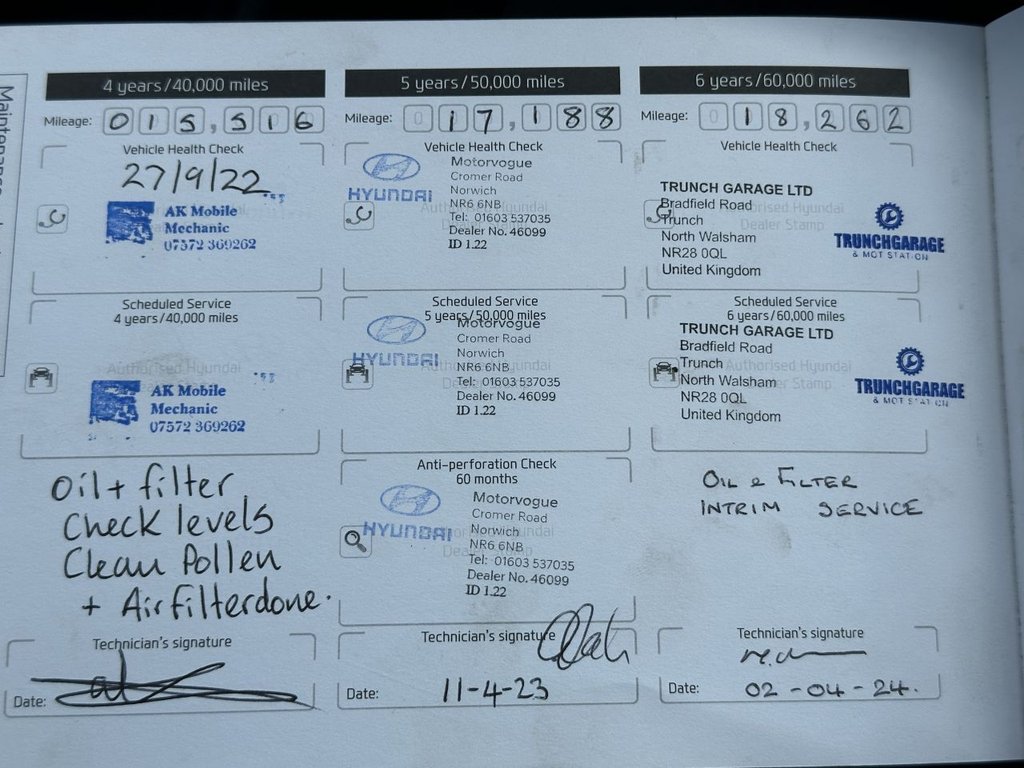 Maintenance
4 years/40,000 miles
Mileage: 015,516
Vehicle Health Check
27/9/22
AK Mobile
Mechanic
07572 369262
Scheduled Service
4 years/40,000 miles
Authorised Hyundai
AK Mobile
Mechanic
07572 369262
Oil + filter
Check levels
Clean Pollen
+ Air filter done.
Technician's signature
Date:
5 years/50,000 miles
Mileage: 017,188
Vehicle Health Check
HYUNDAI
Motorvogue
Cromer Road
Norwich
NR6 6NB
Tel: 01603 537035
Dealer No. 46099
ID 1.22
Scheduled Service
5 years/50,000 miles
HYUNDAI
Motorvogue
Cromer Road
Norwich
NR6 6NB
Tel: 01603 537035
Dealer No. 46099
ID 1.22
Anti-perforation Check
60 months
HYUNDAI
Motorvogue
Cromer Road
Norwich
NR6 6NB
Tel: 01603 537035
Dealer No. 46099
ID 1.22
Technician's signature
Date: 11-4-23
6 years/60,000 miles
Mileage: 018,262
Vehicle Health Check
Authorised Hyundai
Dealer Stamp
TRUNCH GARAGE LTD
Bradfield Road
Trunch
North Walsham
NR28 0QL
United Kingdom
TRUNCHGARAGE
& MOT STATION
Scheduled Service
6 years/60,000 miles
Authorised Hyundai
Dealer Stamp
TRUNCH GARAGE LTD
Bradfield Road
Trunch
North Walsham
NR28 0QL
United Kingdom
TRUNCHGARAGE
& MOT STATION
OIL & FILTER
INTRIM SERVICE
Technician's signature
Date: 02-04-24.